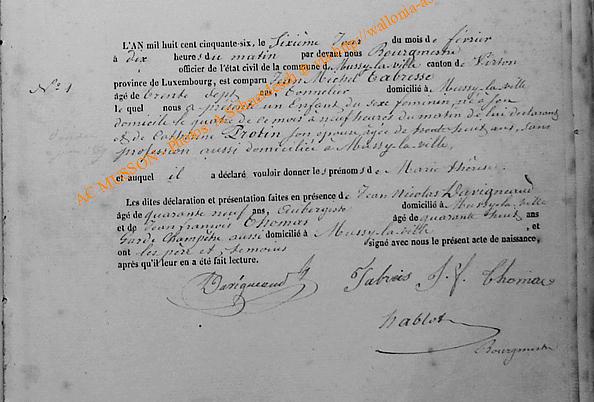 L'AN mil huit cent cinquante-six, le Sixième Jour du mois de février
à dix heures du matin par devant nous Bourgmestre
officier de l'état civil de la commune de Mussy-la-ville canton de Virton
N° 1
province de Luxembourg, est comparu Jean Michel
âgé de trente Sept ans, Tonnelier domicilié à Mussy-la-ville
lequel nous a présenté un Enfant du sexe féminin, né à son
domicile le quatre de ce mois à neuf heures du matin de lui déclarant
et de Catherine Protin son épouse, âgée de trente huit ans, sans
profession aussi domiciliée à Mussy-la-ville,
et auquel il a déclaré vouloir donner les prénoms de Marie Thérèse
Les dites déclaration et présentation faites en présence de Jean Nicolas
âgé de quarante neuf ans, Aubergiste domicilié à Mussy-la-ville
et de Jean François Thomas âgé de quarante huit ans
Garde Champêtre aussi domicilié à Mussy-la-ville, et
ont les père et témoins signé avec nous le présent acte de naissance,
après qu'il leur en a été fait lecture.
J. f. Thomas
Bourgmestre
AC MUSSON - Photos